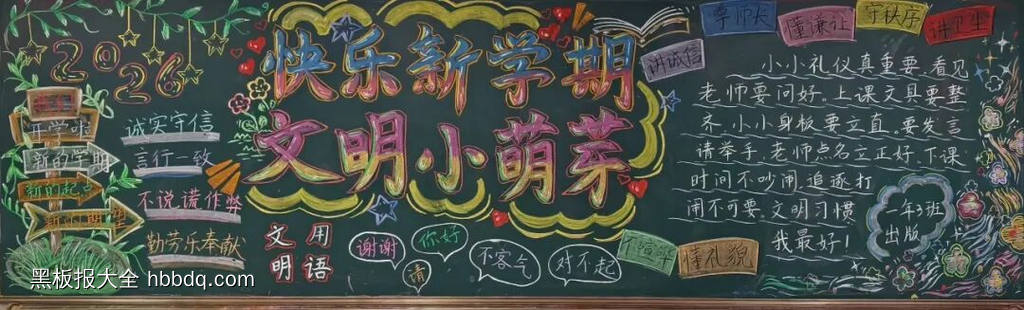 2026
开学啦
新的学期
新的起点
诚实守信
言行一致
不说谎作弊
勤劳乐奉献
快乐新学期
文明小萌芽
文明用语
谢谢
你好
请
不客气
对不起
讲诚信
孝师长
懂谦让
守秩序
讲卫生
小小礼仪真重要.看见
老师要问好.上课文具要整
齐.小小身板要立直.要发言
请举手.老师点名立正好.下课
时间不吵闹.追逐打
闹不可要.文明习惯
我最好!
不喧哗
懂礼貌
一年3班
出版
黑板报大全 hbbdq.com